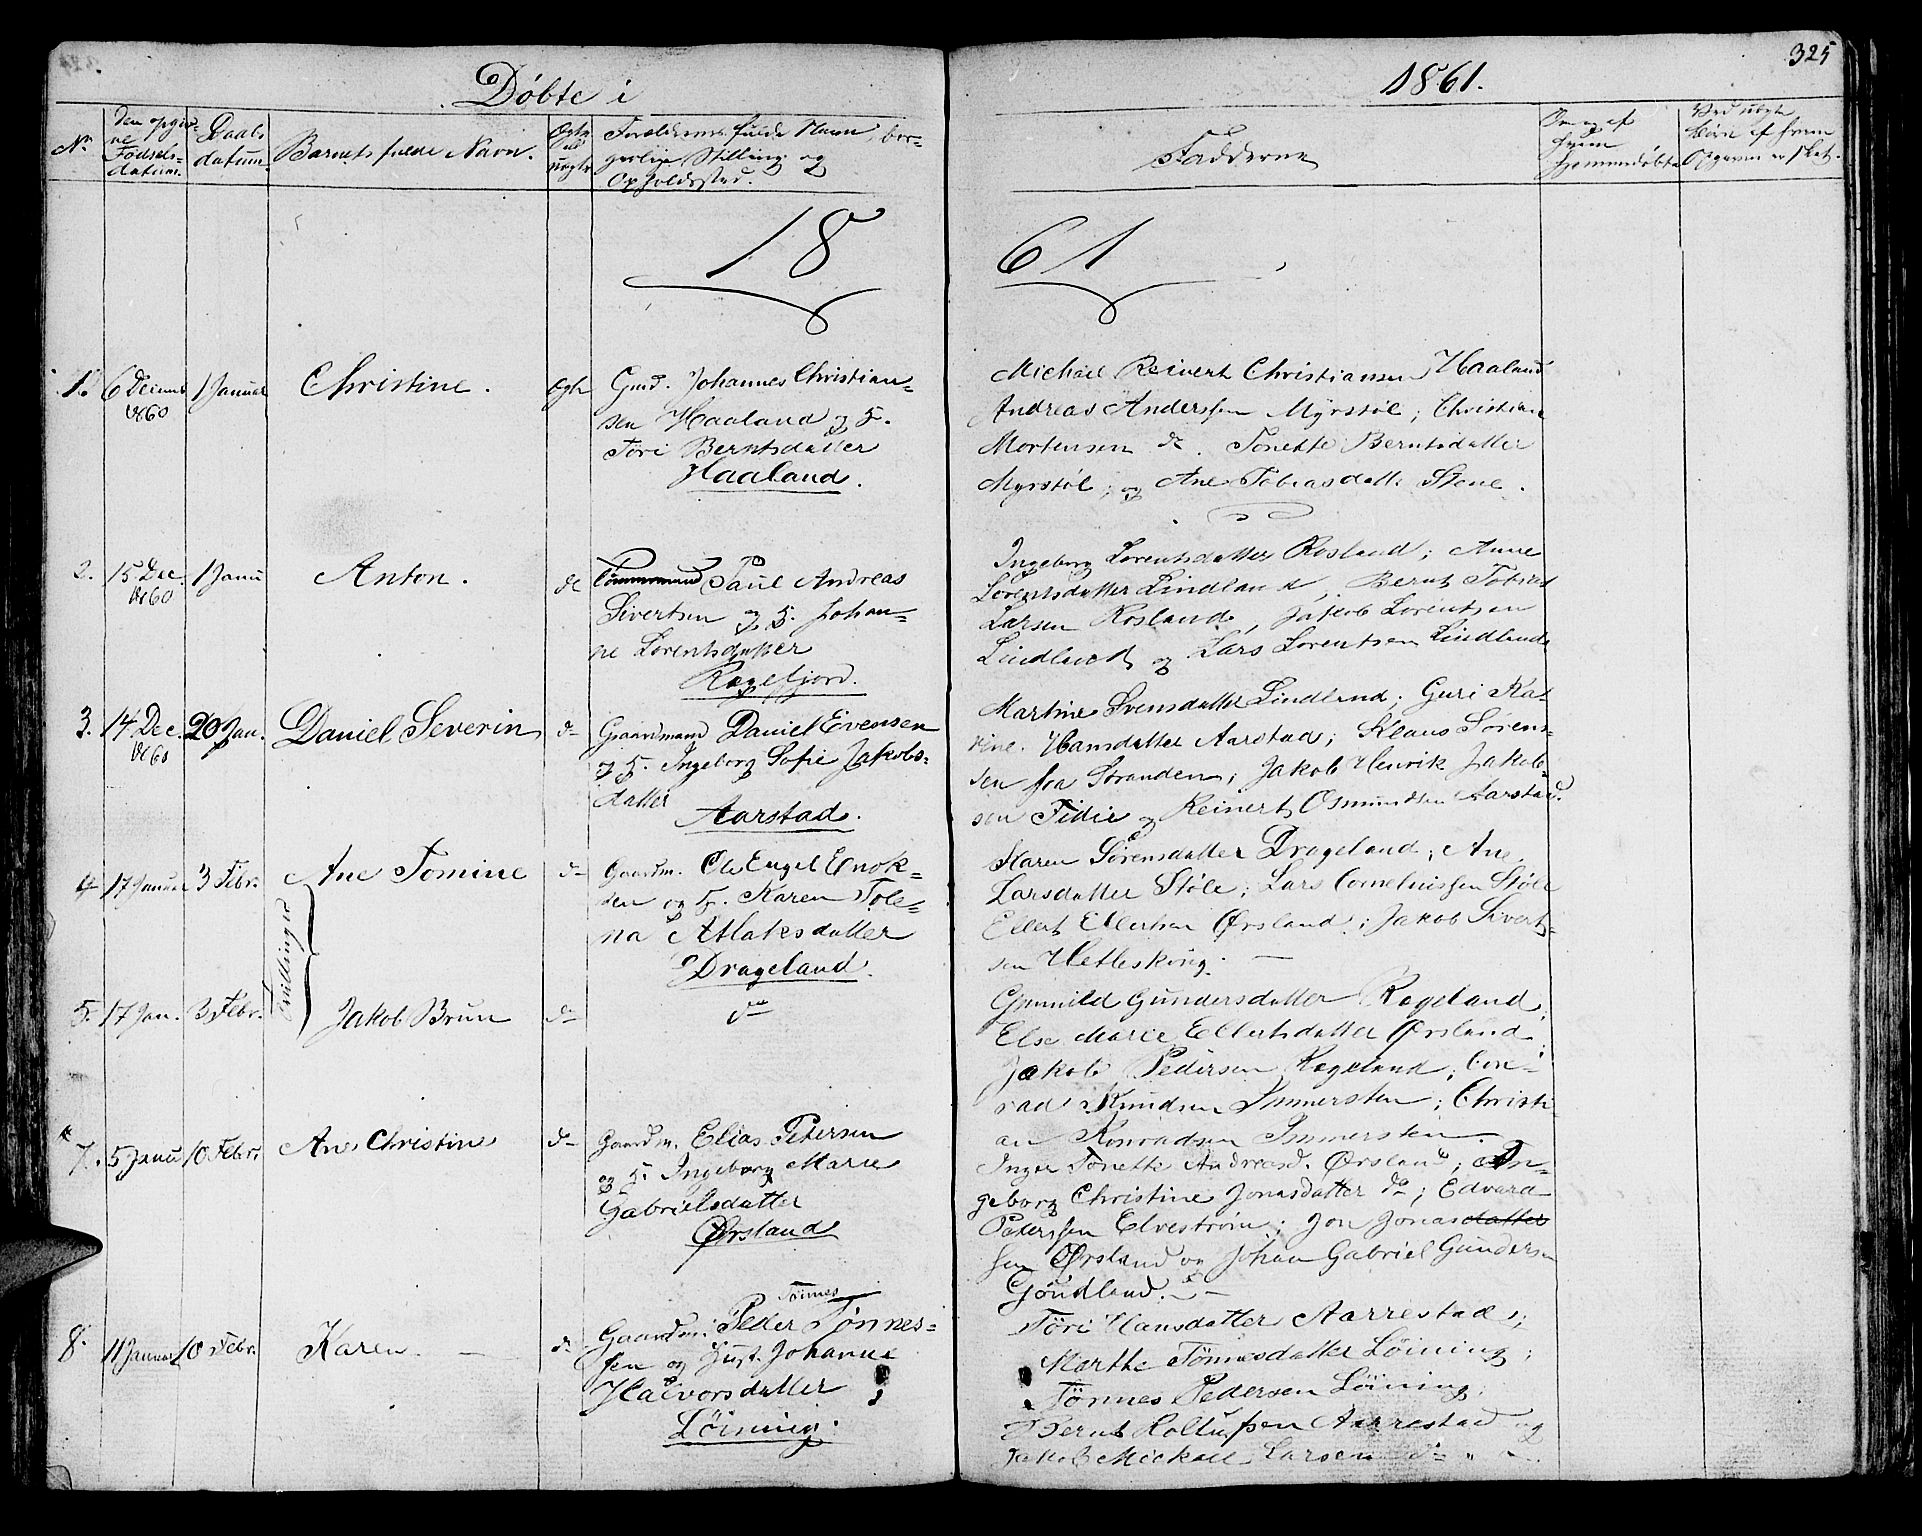 325
Døbte i 1861.
No
den opgivne Fødselsdatum.
Daabsdatum.
Barnets fulde Navn.
Ægte eller uægte
Forældrenes fulde Navn, borgerlige Stilling og Opholdssted.
Faddere
Om og af hvem hjemmedøbt
Ved uægte Børn af hvem Opgaven er skeet.
1861
1. 6 Decemb 1860 1 Januar Christine. Ægte
Gmd. Johannes Christian-
sen Haaland og H.
Töri Berntsdatter
Haaland.
Michael Reinert Christiansen Haaland
Andreas Anderssen Myrstøl; Christian
Mortensen do. Tonette Berntsdatter
Myrstøl; og Ane Tobiasdatt. Stene.
2. 15 Dec. 1860 1 Janu Anton. do
Tømmermand Paul Andreas
Sivertsen og H. Johan-
ne Lorentsdatter
Rægefjord.
Ingeborg Lorentsdatter Rosland; Anne
Lorentsdatter Lindland, Bernt Tobias
Larsen Rosland, Jakob Lorentsen
Lindland og Lars Lorentsen Lindland
3. 14 Dec. 1860 20 Jan. Daniel Severin do
Gaardmand Daniel Evensen
og H. Ingeborg Sofie Jakobs-
datter
Aarstad.
Martine Svensdatter Lindland; Guri Ka-
rine Hansdatter Aarstad; Klaus Sörens-
sen fra Stranden; Jakob Henrik Jakob-
sen Tidie og Reinert Osmundsen Aarstad.
4 17 Januar 3 Febr. Ane Tomine do
Tvillinger
Gaardm. Ole Engel Enok-
sen og H. Karen Tole-
na Atlaksdatter
Drageland.
Karen Sörensdatter Drageland; Ane
Larsdatter Støle; Lars Corneliussen Støle
Ellert Ellertsen Ørsland; Jakob Sivert-
sen Hetleskog.
5. 17 Jan. 3 Febr. Jakob Brun do
do
Gunnild Gundersdatter Rægeland;
Else Marie Ellertsdatter Ørsland;
Jakob Pedersen Rægeland; Con-
rad Knudsen Immersten; Christi-
an Konradsen Immersten.
7. 5 Janu 10 Febr. Ane Christine do
Gaardm. Elias Petersen
og H. Ingeborg Marie
Gabrielsdatter
Ørsland
Inger Tonette Andreasd. Ørsland; In-
geborg Christine Jonasdatter do; Edvard
Peterssen Elvestrøm; Jon Jonasdatter
sen Ørsland og Johan Gabriel Gunders
Goudland.
8. 11 Januar 10 Febr. Karen. do
Tönnes
Gaardm. Peder Tönnes-
sen og Hust. Johanne
Halvorsdatter
Löining.
Töri Hansdatter Aarrestad;
Marthe Tönnesdatter Löining;
Tönnes Pedersen Löining;
Bernt Aarrestad og
Jakob Mickall Larsen do